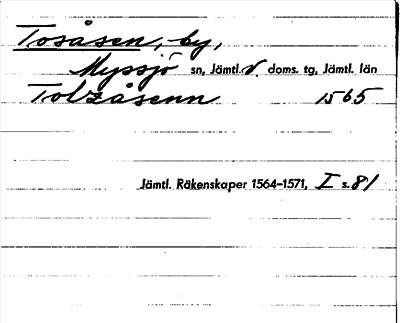 Tosåsen, by,
Myssjö sn, Jämtl. V. doms. tg, Jämtl. län
Tolzåsenn 1565
Jämtl. Räkenskaper 1564-1571, I s. 81